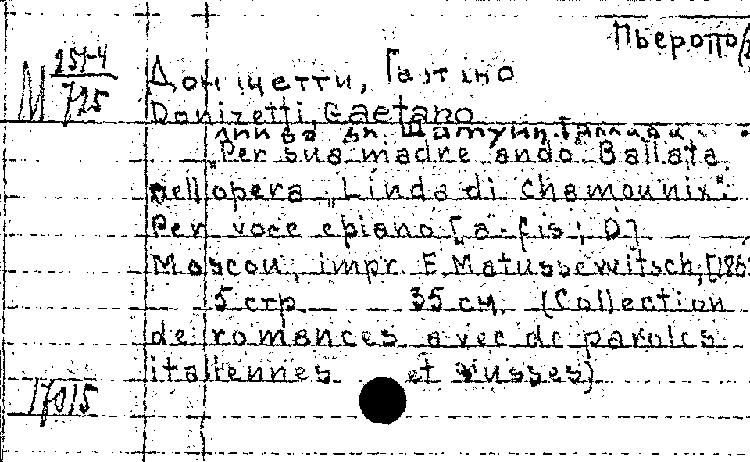 Пьеропо
M 251-4
725
Доницетти, Гаэтано
Donizetti, Gaetano
Линда ди Шамуни. Баллада
"Per sua madre andò". Ballata
dell'opera "Linda di Chamounix".
Per voce e piano [a-fis; D]
Moscou, impr. E. Matussewitsch, [186
5 стр. 35 см. (Collection
de romances avec de paroles
italiennes et russes)
17015